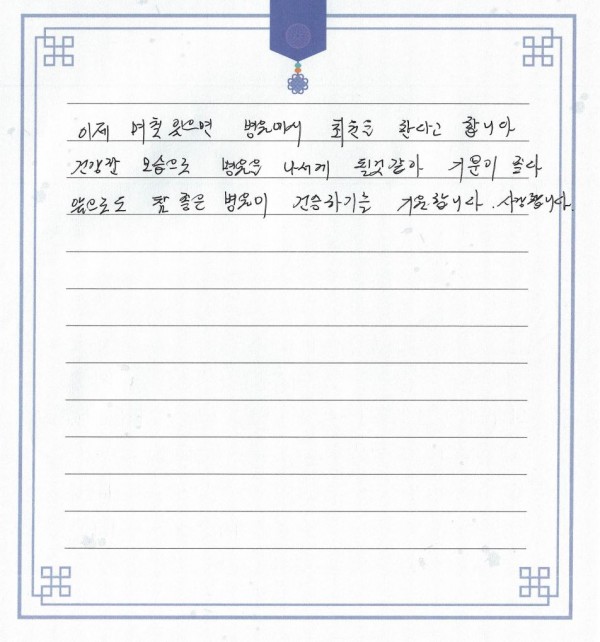 이제 며칠 있으면 병원에서 퇴원을 한다고 합니다
건강한 모습으로 병원을 나서게 될것 같아 기분이 좋다
앞으로도 참 좋은 병원이 건승하기를 기원합니다. 사랑합니다.